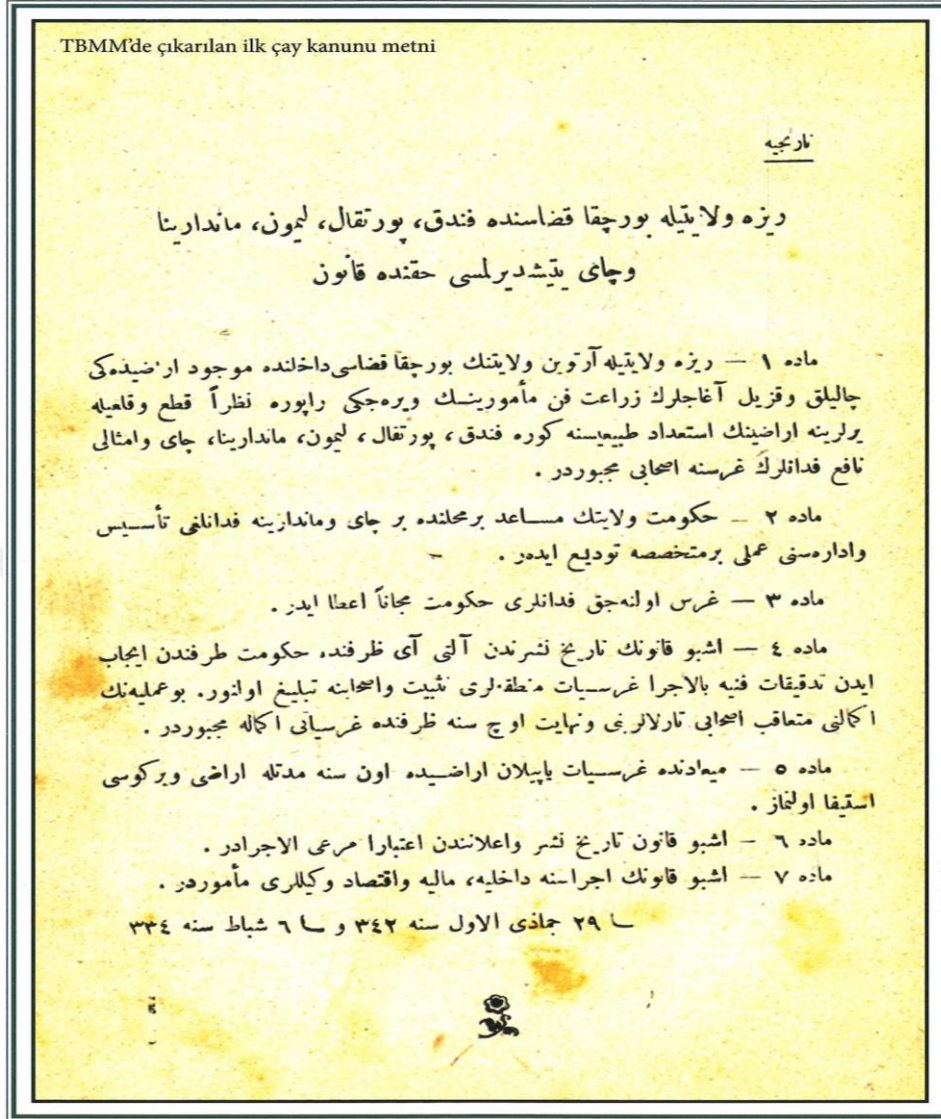 TBMM'de çıkarılan ilk çay kanunu metni
نارنجیه
ریزه ولایتیله بورچقا قضاسنده فندق، پورتقال، لیمون، ماندارینا
وچای یتیشدیرلمسی حقنده قانون
ماده ١ — ریزه ولایتیله آرتوین ولایتنك بورچقا قضاسی داخلنده موجود اراضیده‌کی
چالیلق وقزیل آغاجلرك زراعت فن مأمورینـك ویره‌جکی راپوره نظراً قطع وقلعیله
یرلرینه اراضینك استعداد طبیعیسنه کوره فندق، پورتقال، لیمون، ماندارینا، چای وامثالی
نافع فدانلرك غرسنه اصحابی مجبوردر .
ماده ٢ — حکومت ولایتك مساعد برمحلنده بر چای وماندارینه فدانلغی تأسیس
واداره‌سنی عملی برمتخصصه تودیع ایدر .
ماده ٣ — غرس اولنه‌جق فدانلری حکومت مجاناً اعطا ایدر .
ماده ٤ — اشبو قانونك تاریخ نشرندن آلتی آی ظرفنده حکومت طرفندن ایجاب
ایدن تدقیقات فنیه بالاجرا غرسیات منطقه‌لری تثبیت واصحابنه تبلیغ اولنور. بوعملیه‌نك
اکمالنی متعاقب اصحابی تارلالرینی ونهایت اوچ سنه ظرفنده غرسیاتی اکماله مجبوردر .
ماده ٥ — میعادنده غرسیات یاپیلان اراضیده اون سنه مدتله اراضی ویرکوسی
استیفا اولنماز .
ماده ٦ — اشبو قانون تاریخ نشر واعلانندن اعتبارا مرعی الاجرادر .
ماده ٧ — اشبو قانونك اجراسنه داخلیه، مالیه واقتصاد وکیللری مأموردر .
٢٩ جماذی الاول سنه ٣٤٢ و ٦ شباط سنه ٣٣٤